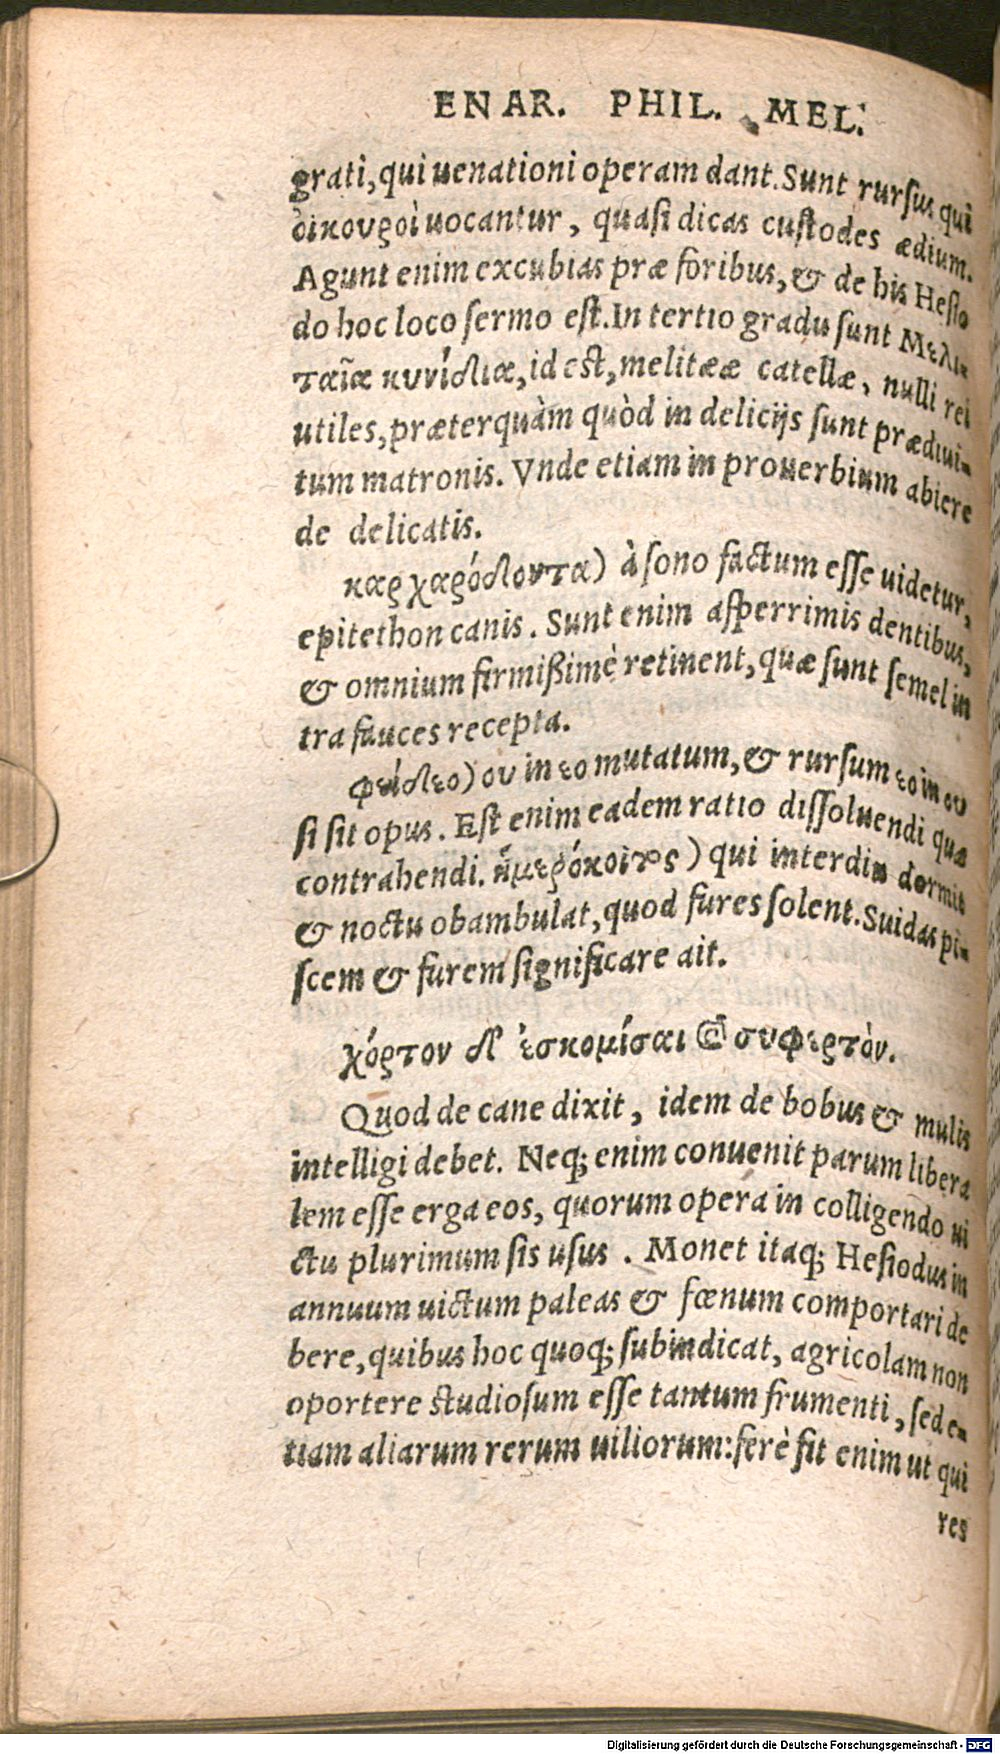 ENAR. PHIL. MEL.
grati, qui uenationi operam dant. Sunt rursus qui
οἰκουροὶ uocantur, quasi dicas custodes ædium.
Agunt enim excubias præ foribus, & de his Hesio
do hoc loco sermo est. In tertio gradu sunt Μελι-
ταῖα κυνίδια, id est, melitææ catellæ, nulli rei
utiles, præterquàm quòd in delicijs sunt prædiui-
tum matronis. Vnde etiam in prouerbium abiere
de delicatis.
καρχαρόδοντα) à sono factum esse uidetur,
epitethon canis. Sunt enim asperrimis dentibus,
& omnium firmißimè retinent, quæ sunt semel in
tra fauces recepta.
φείδεο) ου in εο mutatum, & rursum εο in ου
si sit opus. Est enim eadem ratio dissoluendi quæ
contrahendi. ἡμερόκοιτος) qui interdiu dormit
& noctu obambulat, quod fures solent. Suidas pi-
scem & furem significare ait.
χόρτον δ' ἐσκομίσαι καὶ συφερτὸν.
Quod de cane dixit, idem de bobus & mulis
intelligi debet. Neq; enim conuenit parum libera
lem esse erga eos, quorum opera in colligendo ui
ctu plurimum sis usus. Monet itaq; Hesiodus in
annuum uictum paleas & fœnum comportari de
bere, quibus hoc quoq; subindicat, agricolam non
oportere studiosum esse tantum frumenti, sed e-
tiam aliarum rerum uiliorum: ferè fit enim ut qui
res
Digitalisierung gefördert durch die Deutsche Forschungsgemeinschaft - DFG